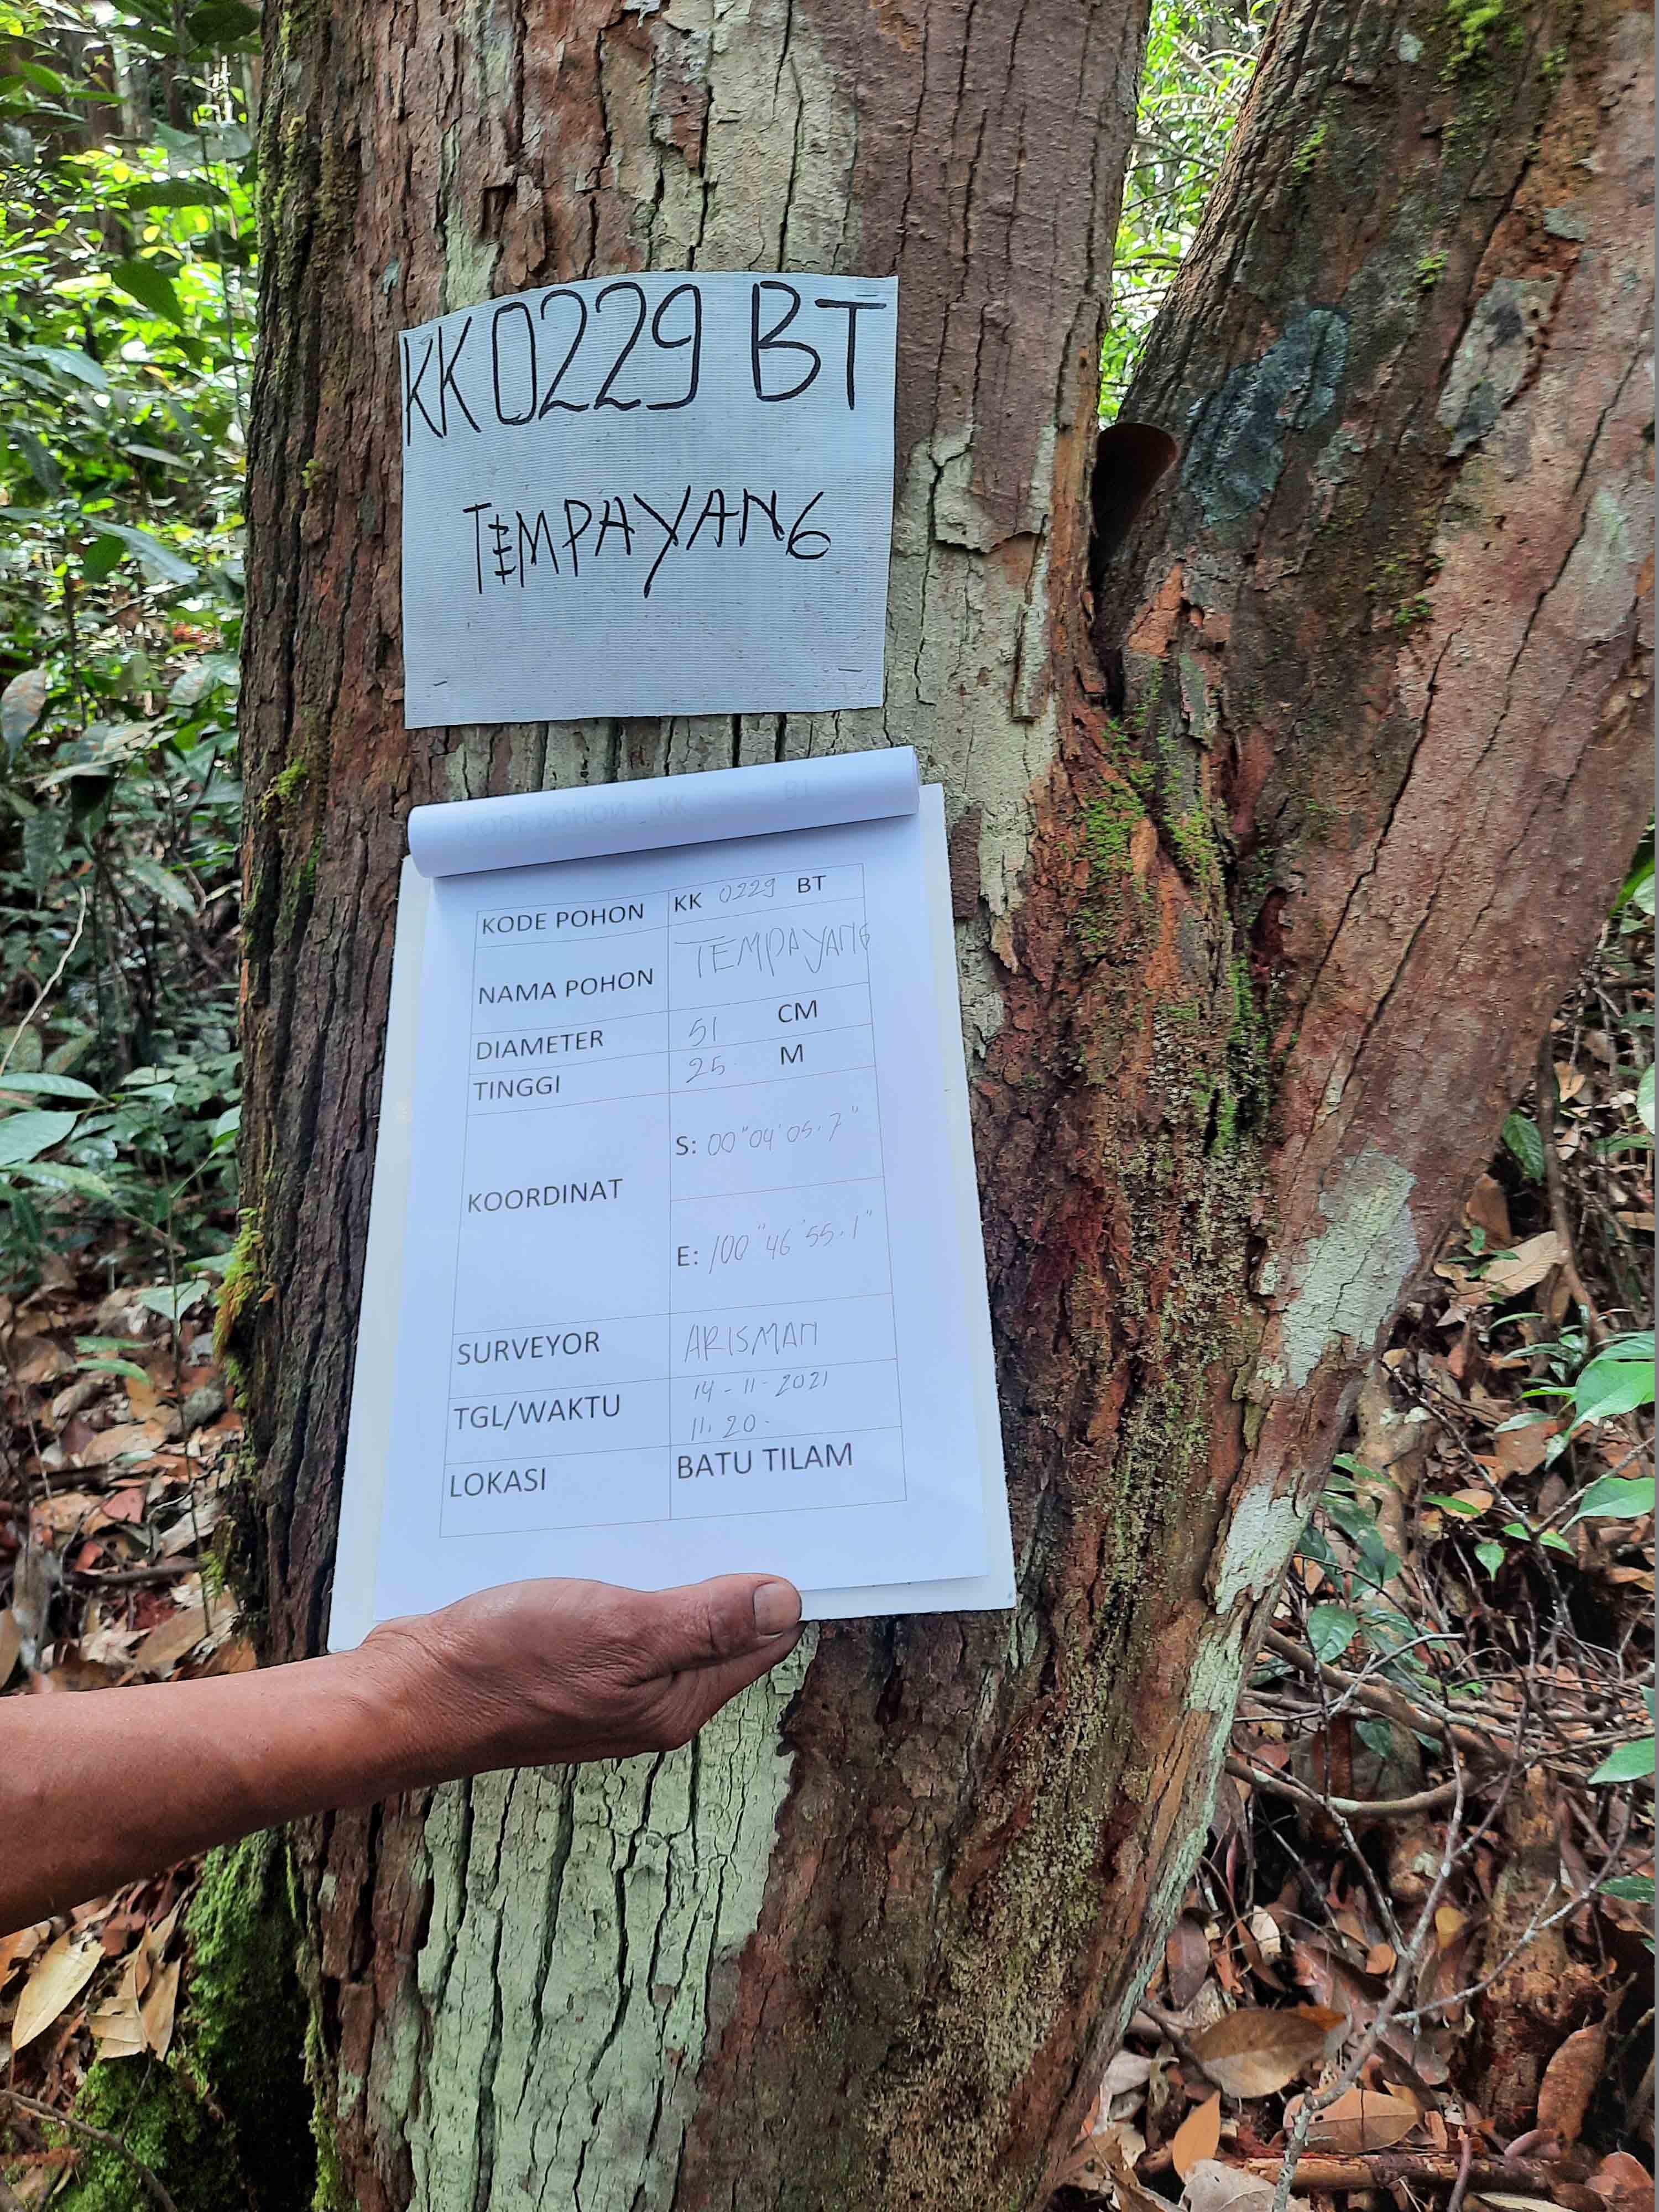 KK0229 BT
TEMPAYANG
KODE POHON KK 0229 BT
NAMA POHON TEMPAYANG
DIAMETER 51 CM
TINGGI 25 M
KOORDINAT
S: 00"04'05.7"
E: 100"46'55.1"
SURVEYOR ARISMAN
TGL/WAKTU 14-11-2021
11.20.
LOKASI BATU TILAM